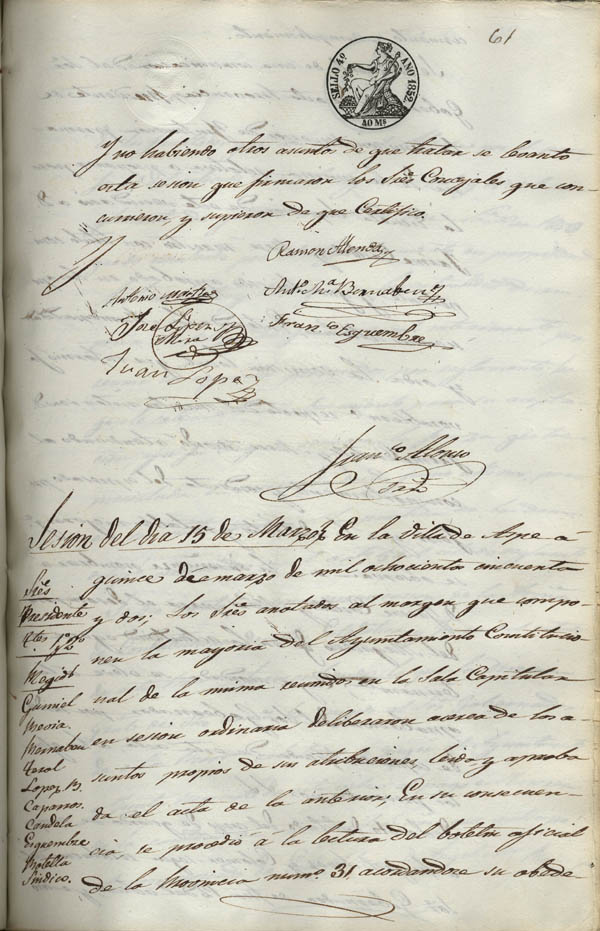 61
SELLO 4º AÑO 1852.
40 Ms
Y no habiendo otros asuntos de que tratar se levantó
esta sesion que firmaron los Sres Concejales que con
currieron, y supieron de que Certifico.
Ramon Almodar
Antonio Martinez
Antº Mª Bernabeu
Jose Lopez
Mira
Franco Esquembre
Juan Lopez
Franco Alonso
Sesion del dia 15 de Marzo En la Villa de Aspe á
quince de marzo de mil ochocientos cincuenta
y dos; Los Sres anotados al margen que compo
nen la mayoria del Ayuntamiento Constitucio
nal de la misma reunidos en la Sala Capitular
en sesion ordinaria deliberaron acerca de los a
suntos propios de sus atribuciones, leida y aproba
da el acta de la anterior; En su consecuen
cia, se procedió á la lectura del boletin oficial
de la Provincia numº 31 acordandose su obede
Sres
Presidente
Ttes 1º y 2º
Regids
Gumiel
Mexia
Bernabeu
Terol
Lopez B.
Caparros.
Candela
Esquembre
Botella
Sindico.